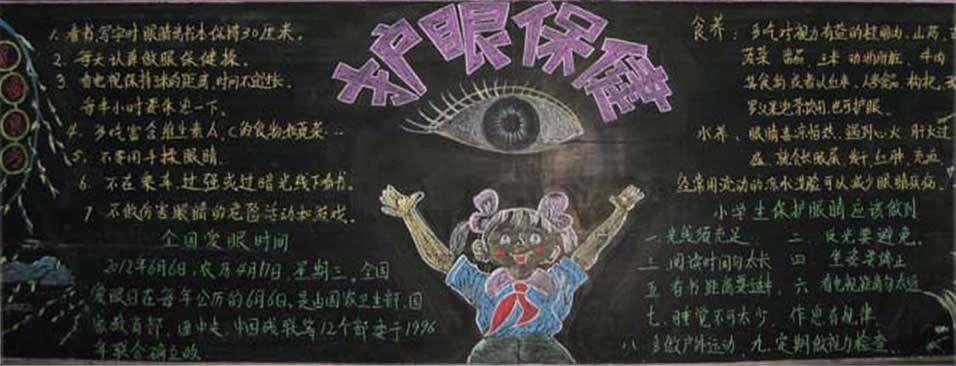 护眼保健
1. 看书,写字时眼睛与书本保持30厘米。
2. 每天认真做眼保健操。
3. 看电视保持1米的距离,时间不宜过长。
每半小时要休息一下。
4. 多吃富含维生素A、C的食物和蔬菜…
5. 不要用手揉眼睛.
6. 不在乘车,过强或过暗光线下看书。
7. 不做伤害眼睛的危险活动和游戏。
全国爱眼时间
2012年6月6日,农历4月17日 星期三,全国
爱眼日在每年公历的6月6日,是由国家卫生部,国
家教育部,团中央,中国残联等12个部委于1996
年联合确立的
食养: 多吃对视力有益的
蔬菜
其食物 枸杞
饮用,也可护眼.
水养、眼睛喜凉怕热 遇到心火 肝火过
红肿
经常用流动的凉水洗脸可以减少眼睛疾病.
小学生保护眼睛应该做到
一、光线须充足、 二、反光要避免.
三、阅读时间勿太长 四、坐姿要端正
五、看书距离要适中、六、看电视距离勿太近
七、睡觉不可太少、作息有规律.
八、多做户外运动、九、定期做视力检查.